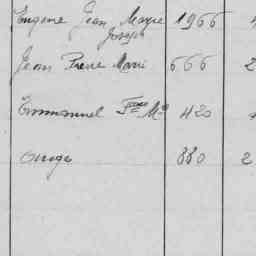 Eugène Jean Marie 1966
Joseph
Jean Pierre Marie 666 2
Emmanuel Fçois Mie 420
880 2